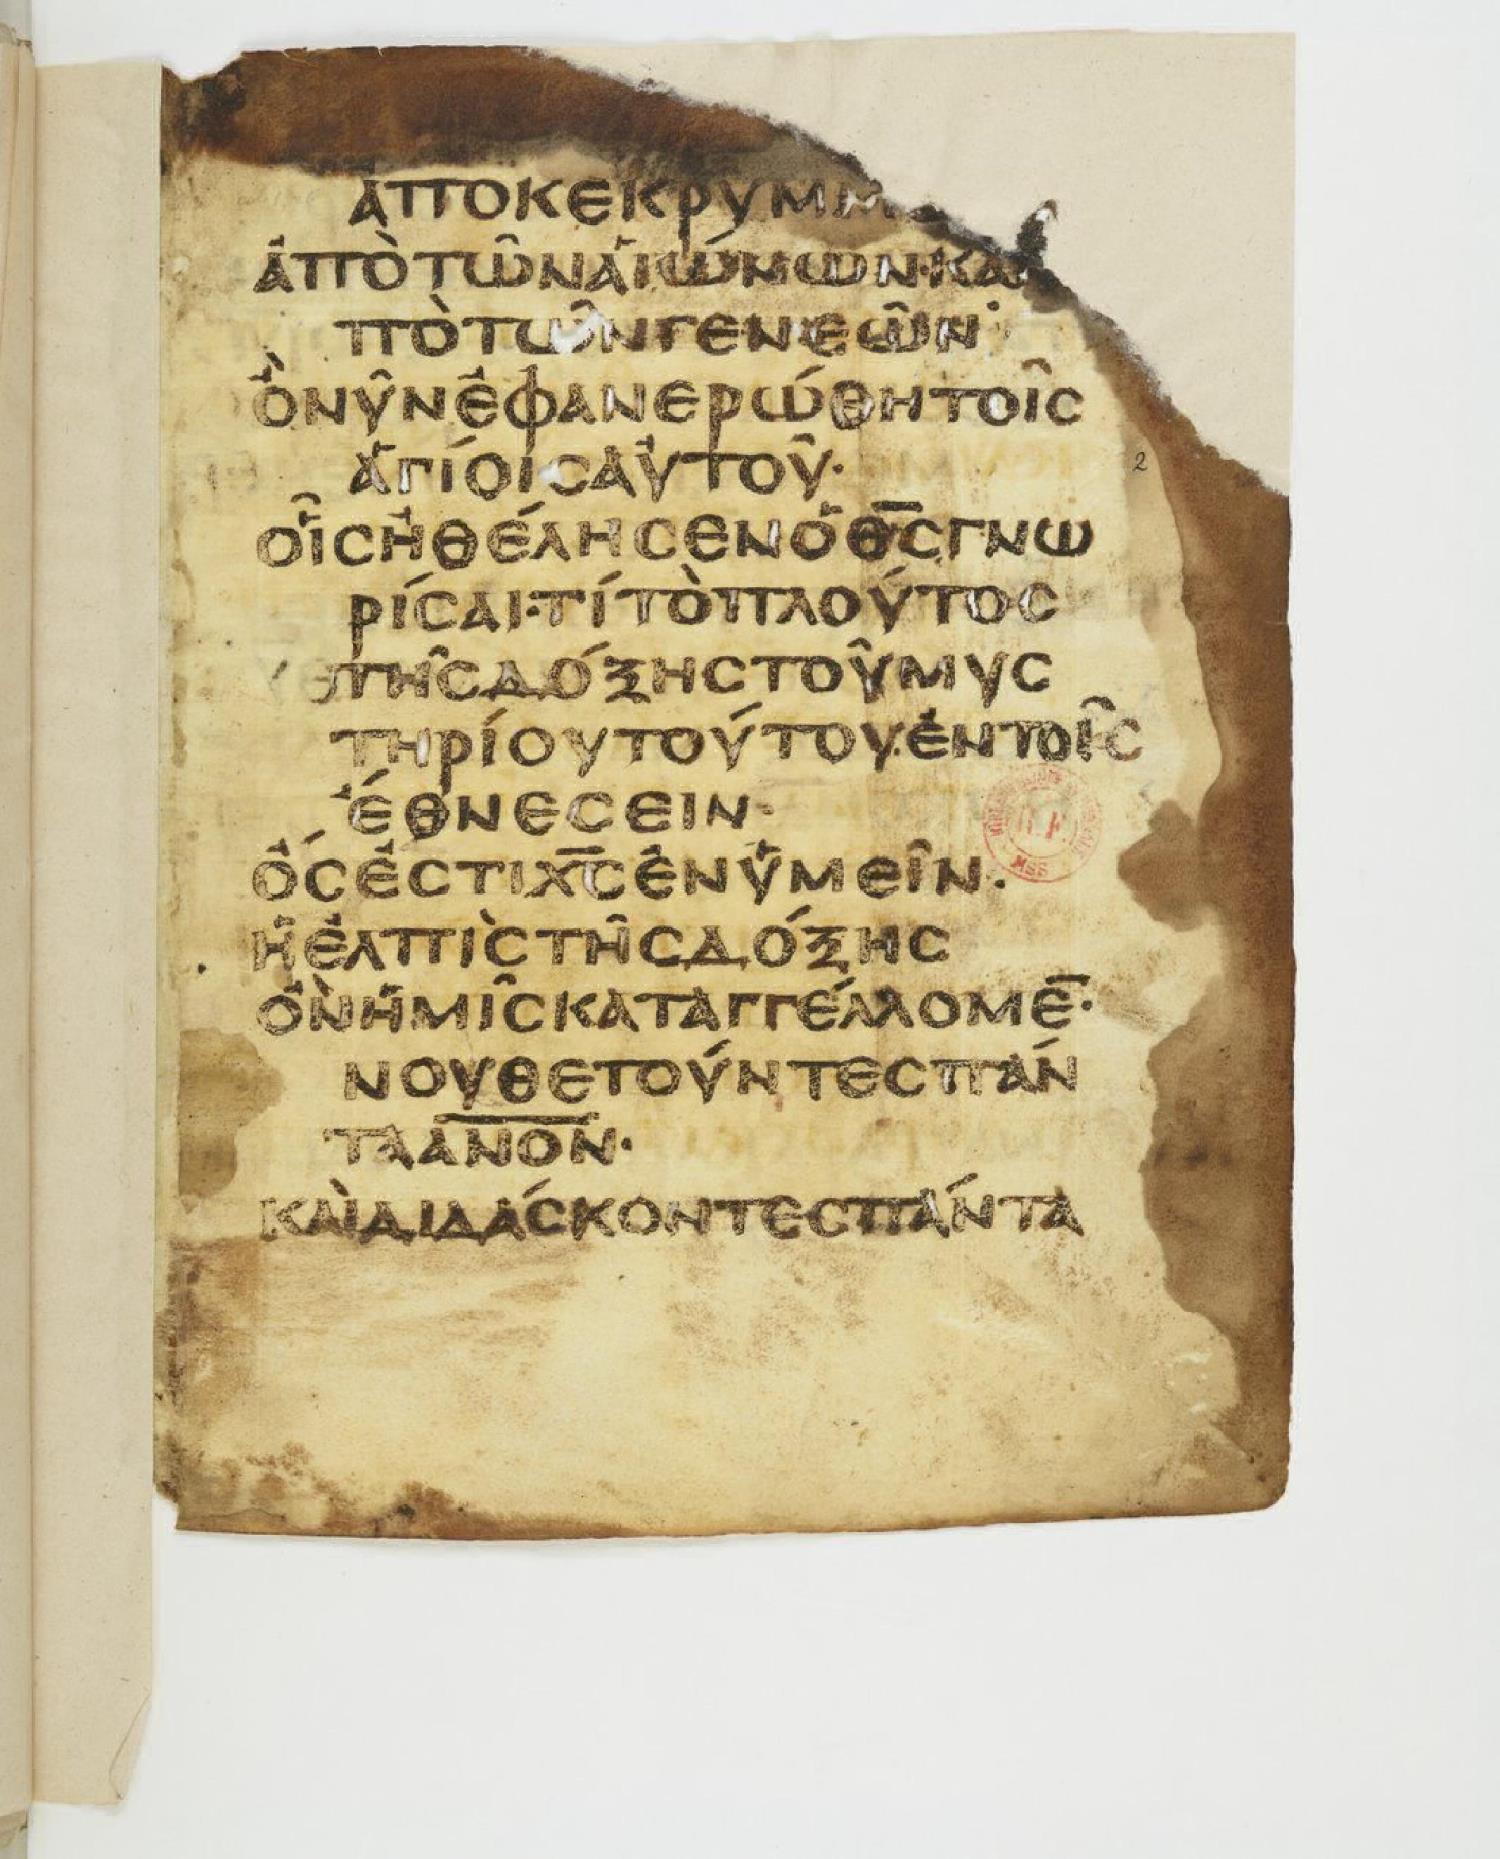 ἀποκεκρυμμ
ἀπὸτῶνἁιώνων·κα
πὸτῶνγενεῶν·
ὃνῦνἐφανερώθητοῖς
ἁγίοιςἀυτοῦ·
οἷςἠθέλησενὁθ̅ς̅γνω
ρίσαι·τίτὸπλούτος
τῆςδόξηςτοῦμυς
τηρίουτούτου·ἐντοῖς
ἔθνεσειν·
ὅςἐστιχ̅ς̅ἐνὑμεῖν·
ἡἐλπὶςτῆςδόξης
ὃνἡμῖςκαταγγέλλομε̅·
νουθετούντεςπάν
ταα̅ν̅ο̅ν̅·
καὶδιδάσκοντεςπάντα
2